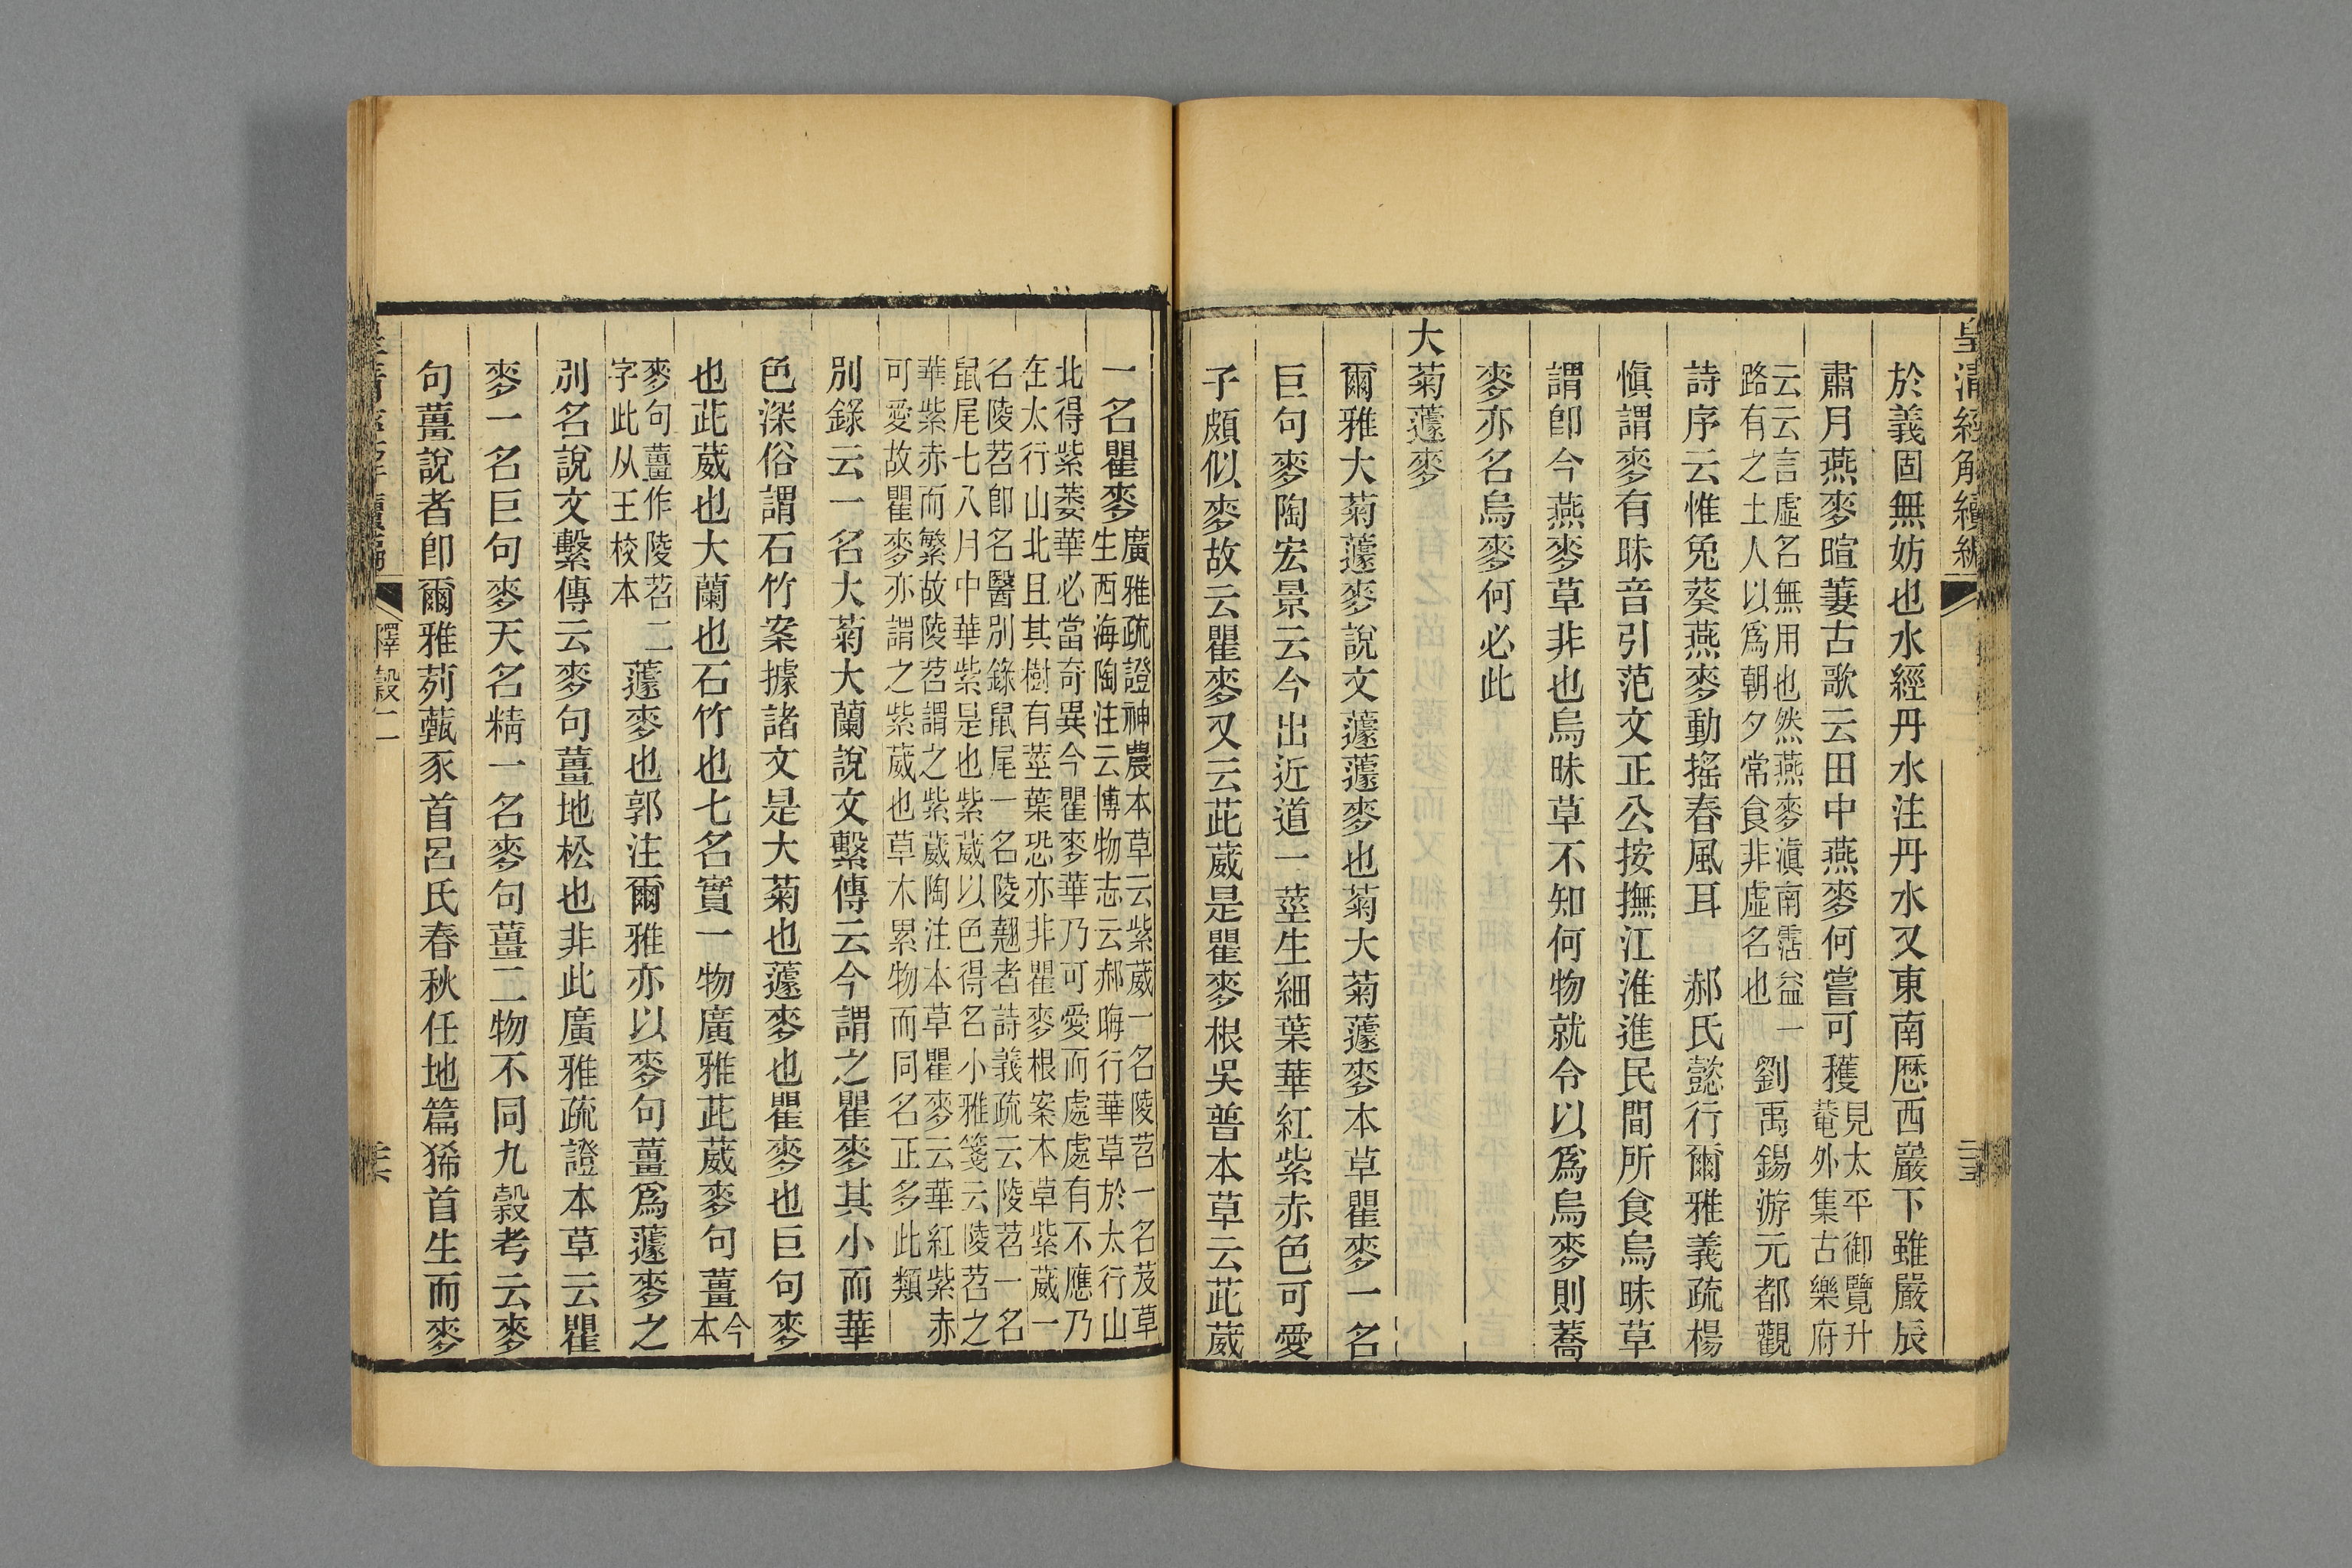 皇清經解續編
於義固無妨也水經丹水注丹水又東南歷西巖下雖嚴辰
肅月燕麥暄萋古歌云田中燕麥何嘗可穫見太平御覽升菴外集古樂府
云云言虛名無用也然燕麥滇南霑益一路有之土人以爲朝夕常食非虛名也劉禹錫游元都觀
詩序云惟兔葵燕麥動搖春風耳 郝氏懿行爾雅義疏楊
愼謂麥有昧音引范文正公按撫江淮進民間所食烏昧草
謂卽今燕麥草非也烏昧草不知何物就令以爲烏麥則蕎
麥亦名烏麥何必此
大菊蘧麥
爾雅大菊蘧麥說文蘧蘧麥也菊大菊蘧麥本草瞿麥一名
巨句麥陶宏景云今出近道一莖生細葉華紅紫赤色可愛
子頗似麥故云瞿麥又云茈葳是瞿麥根吳普本草云茈葳
一名瞿麥廣雅疏證神農本草云紫葳一名陵苕一名茇草
生西海陶注云博物志云郝晦行華草於太行山
北得紫葳華必當奇異今瞿麥華乃可愛而處處有不應乃
在太行山北且其樹有莖葉恐亦非瞿麥根案本草紫葳一
名陵苕卽名醫別錄鼠尾一名陵翹者詩義疏云陵苕一名
鼠尾七八月中華紫是也紫葳以色得名小雅箋云陵苕之
華紫赤而繁故陵苕謂之紫葳陶注本草瞿麥云華紅紫赤
可愛故瞿麥亦謂之紫葳也草木累物而同名正多此類
別錄云一名大菊大蘭說文繫傳云今謂之瞿麥其小而華
色深俗謂石竹案據諸文是大菊也蘧麥也瞿麥也巨句麥
也茈葳也大蘭也石竹也七名實一物廣雅茈葳麥句薑今本
麥句薑作陵苕二字此从王校本蘧麥也郭注爾雅亦以麥句薑爲蘧麥之
別名說文繫傳云麥句薑地松也非此廣雅疏證本草云瞿
麥一名巨句麥天名精一名麥句薑二物不同九穀考云麥
句薑說者卽爾雅茢薽豕首呂氏春秋任地篇狶首生而麥
釋穀二